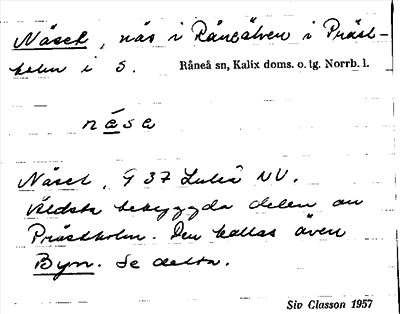 Näset, näs i Råneälven i Präst-
holm i S. Råneå sn, Kalix doms. o. tg. Norrb. l.
näse
Näset, G 37 Luleå NV.
Äldsta bebyggda delen av
Prästholm. Den kallas även
Byn. Se detta.
Siv Classon 1957